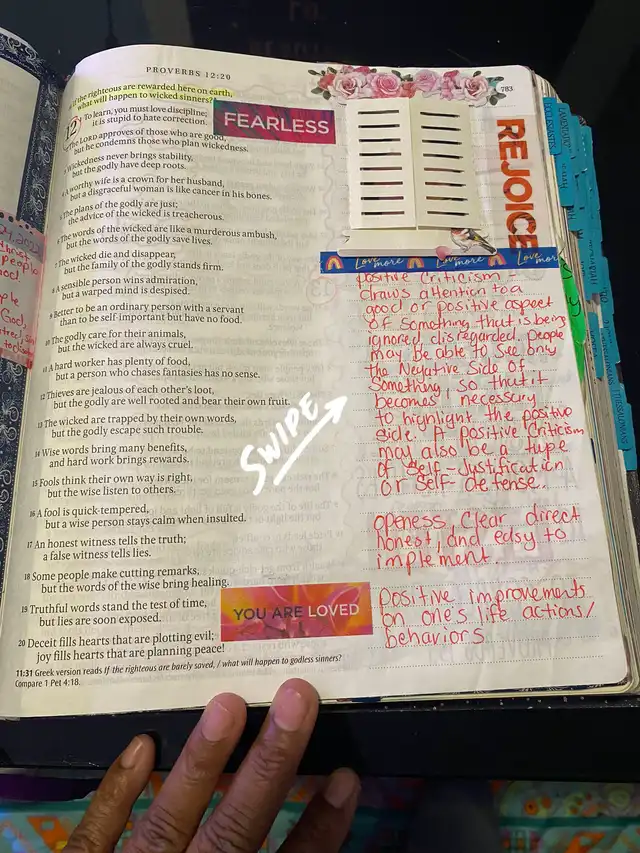 PROVERBS 12:20
783
31 If the righteous are rewarded here on earth,
what will happen to wicked sinners?
12
To learn, you must love discipline;
it is stupid to hate correction.
2 The LORD approves of those who are good,
but he condemns those who plan wickedness.
3 Wickedness never brings stability,
but the godly have deep roots.
4 A worthy wife is a crown for her husband,
but a disgraceful woman is like cancer in his bones.
5 The plans of the godly are just;
the advice of the wicked is treacherous.
6 The words of the wicked are like a murderous ambush,
but the words of the godly save lives.
7 The wicked die and disappear,
but the family of the godly stands firm.
8 A sensible person wins admiration,
but a warped mind is despised.
9 Better to be an ordinary person with a servant
than to be self-important but have no food.
10 The godly care for their animals,
but the wicked are always cruel.
11 A hard worker has plenty of food,
but a person who chases fantasies has no sense.
12 Thieves are jealous of each other's loot,
but the godly are well rooted and bear their own fruit.
13 The wicked are trapped by their own words,
but the godly escape such trouble.
14 Wise words bring many benefits,
and hard work brings rewards.
15 Fools think their own way is right,
but the wise listen to others.
16 A fool is quick-tempered,
but a wise person stays calm when insulted.
17 An honest witness tells the truth;
a false witness tells lies.
18 Some people make cutting remarks,
but the words of the wise bring healing.
19 Truthful words stand the test of time,
but lies are soon exposed.
20 Deceit fills hearts that are plotting evil;
joy fills hearts that are planning peace!
11:31 Greek version reads If the righteous are barely saved, / what will happen to godless sinners?
Compare 1 Pet 4:18.
FEARLESS
REJOICE
Love more Love more Love more
Positive Criticism -
draws attention to a
good or positive aspect
of something that is being
ignored, disregarded. People
may be able to see only
the Negative side of
something, so that it
becomes necessary
to highlight the positive
side. A positive criticism
may also be a type
of self-Justification
or self-defense.
Openess, clear, direct
honest, and easy to
implement.
Positive improvements
on one's life actions/
behaviors
YOU ARE LOVED
SWIPE
ECCLESIASTES
people
God,